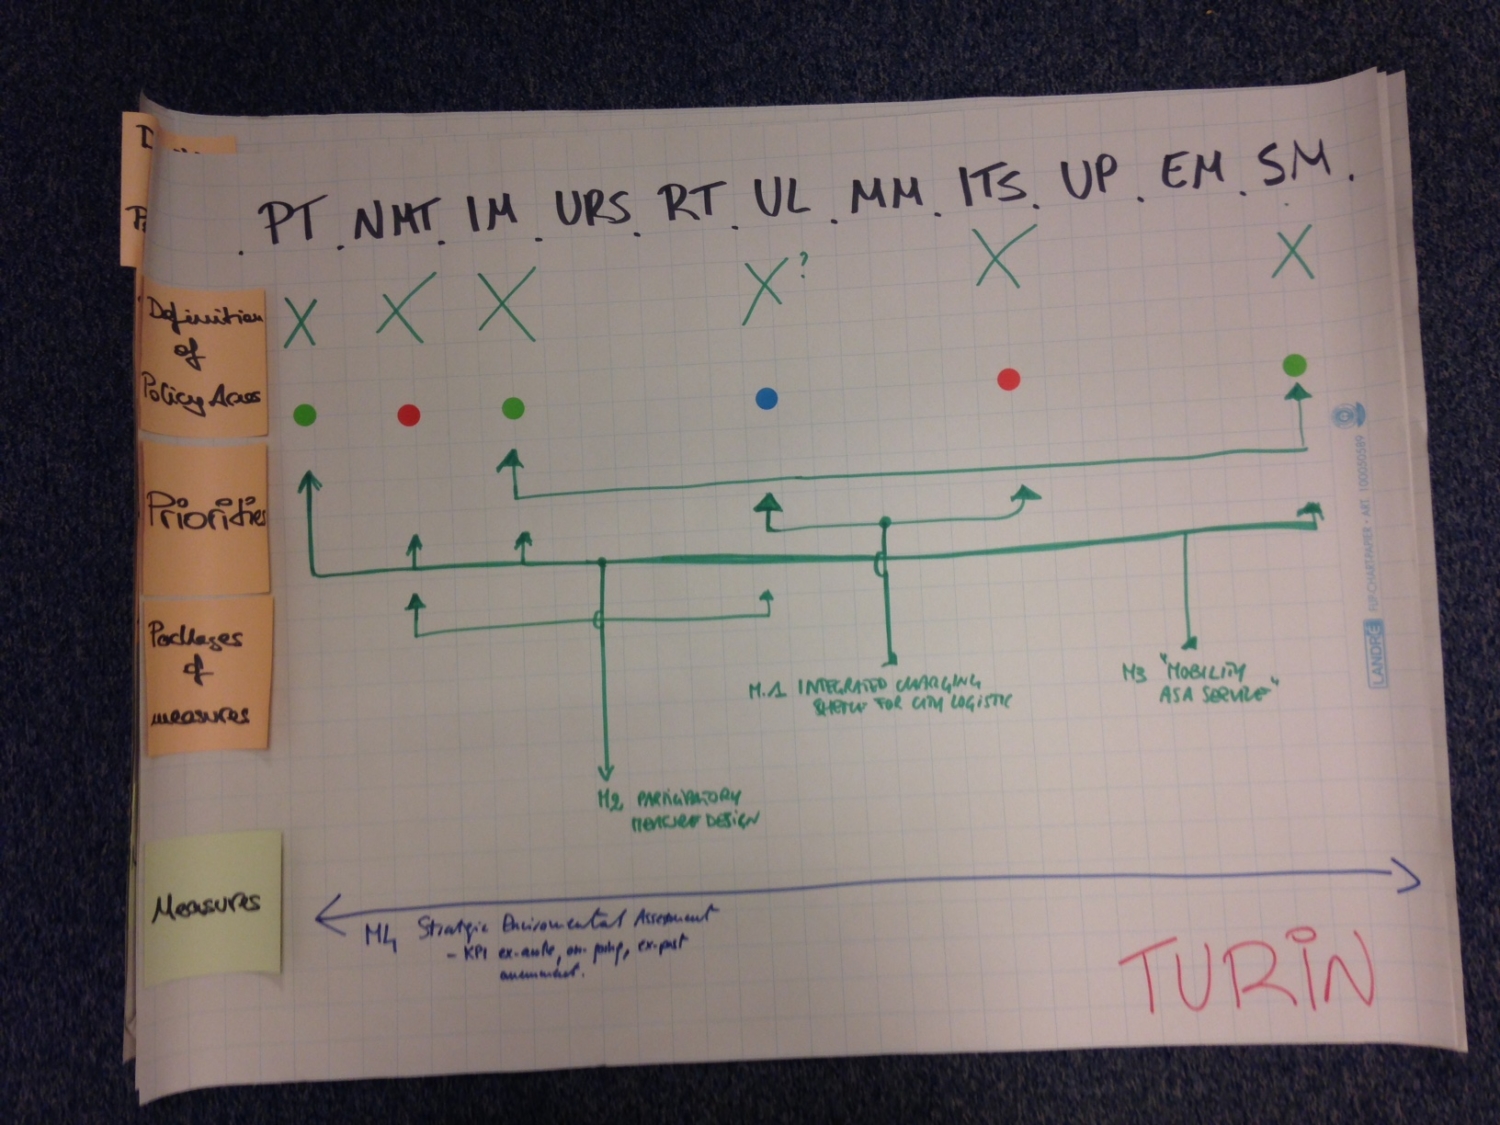 PT . NMT . IM . URS . RT . UL . MM . ITS . UP . EM . SM .
X X X X ? X X
Definition
of
Policy Areas
Priorities
Packages
of
measures
Measures
M.1 INTEGRATED CHARGING
FOR CITY LOGISTIC
M3 "MOBILITY
AS A SERVICE"
M2 PARTICIPATORY
MEASURE DESIGN
M4 Stratgic Enviromental Assesment
- KPI ex-ante, ex-post
TURIN
LANDRÉ FLIP-CHARTPAPIER • ART. 100050589